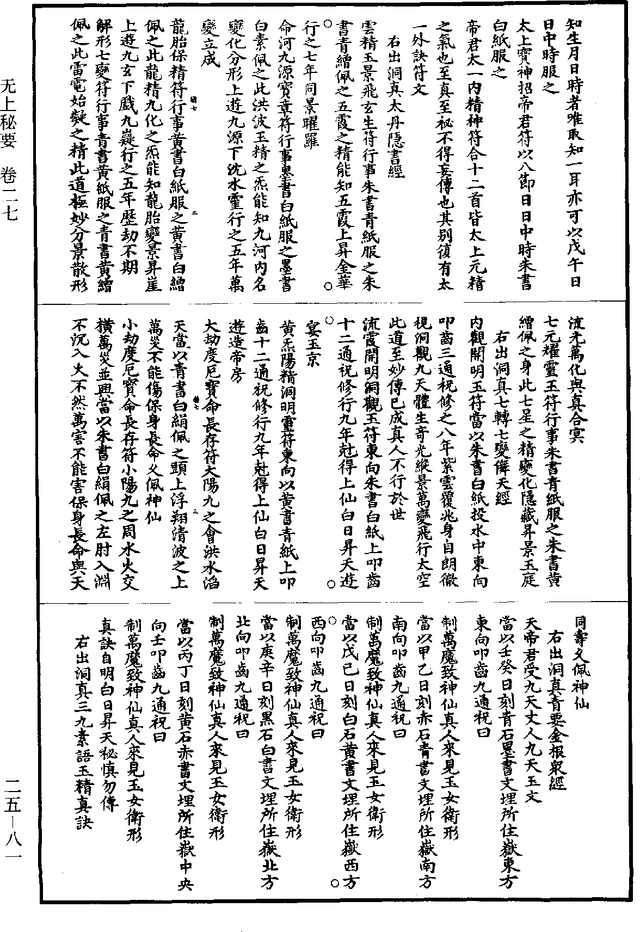 知生月日時者唯取知一耳亦可以戊午日
日中時服之
太上寶神招帝君符以八節日日中時朱書
白紙服之
帝君太一內精神符合十二首皆太上元精
之氣也至真至祕不得妄傳也其別復有太
一外訣符文
右出洞真太丹隱書經
雲精玉景飛玄生符行事朱書青紙服之朱
書青繒佩之五霞之精能知五霞上昇金華
行之七年同景曜羅
命河九源寶章符行事墨書白紙服之墨書
白素佩之此洪波玉精之炁能知九河內名
變化分形上遊九源下沈水靈行之五年萬
變立成
龍胎保精符行事黃書白紙服之黃書白繒
佩之此龍精九化之炁能知龍胎變景昇崖
上遊九玄下戲九嶷行之五年歷劫不期
解形七變符行事青書黃紙服之青書黃繒
佩之此雷電始凝之精此道極妙分景散形
流光萬化與真合冥
七元耀靈玉符行事朱書青紙服之朱書黃
繒佩之身此七星之精變化隱藏昇景玉庭
右出洞真七轉七變儛天經
內觀開明玉符當以朱書白紙投水中東向
叩齒三通祝修之八年紫雲覆兆身自朗徹
視洞觀九天體生奇光縱景萬變飛行太空
此道至妙傳已成真人不行於世
流霞開明洞觀玉符東向朱書白紙上叩齒
十二通祝修行九年尅得上仙白日昇天遊
宴玉京
黃炁陽精洞明靈符東向以黃書青紙上叩
齒十二通祝修行九年尅得上仙白日昇天
遊造帝房
大劫度厄寶命長存符太陽九之會洪水滔
天當以青書白絹佩之頸上浮翔清波之上
萬災不能傷保身長命乂佩神仙
小劫度厄寶命長存符小陽九之周水火交
橫萬災並興當以朱書白絹佩之左肘入淵
不沉入火不然萬害不能害保身長命與天
同壽乂佩神仙
右出洞真青要金根眾經
天帝君受九天丈人九天玉文
當以壬癸日刻青石墨書文埋所住嶽東方
東向叩齒九通祝曰
制萬魔致神仙真人來見玉女衛形
當以甲乙日刻赤石青書文埋所住嶽南方
南向叩齒九通祝曰
制萬魔致神仙真人來見玉女衛形
當以戊己日刻白石黃書文埋所住嶽西方
西向叩齒九通祝曰
制萬魔致神仙真人來見玉女衛形
當以庚辛日刻黑石白書文埋所住嶽北方
北向叩齒九通祝曰
制萬魔致神仙真人來見玉女衛形
當以丙丁日刻黃石赤書文埋所住嶽中央
向壬叩齒九通祝曰
制萬魔致神仙真人來見玉女衛形
真訣自明白日昇天祕慎勿傳
右出洞真三九素語玉精真訣
无上秘要　卷二七
二五—八一